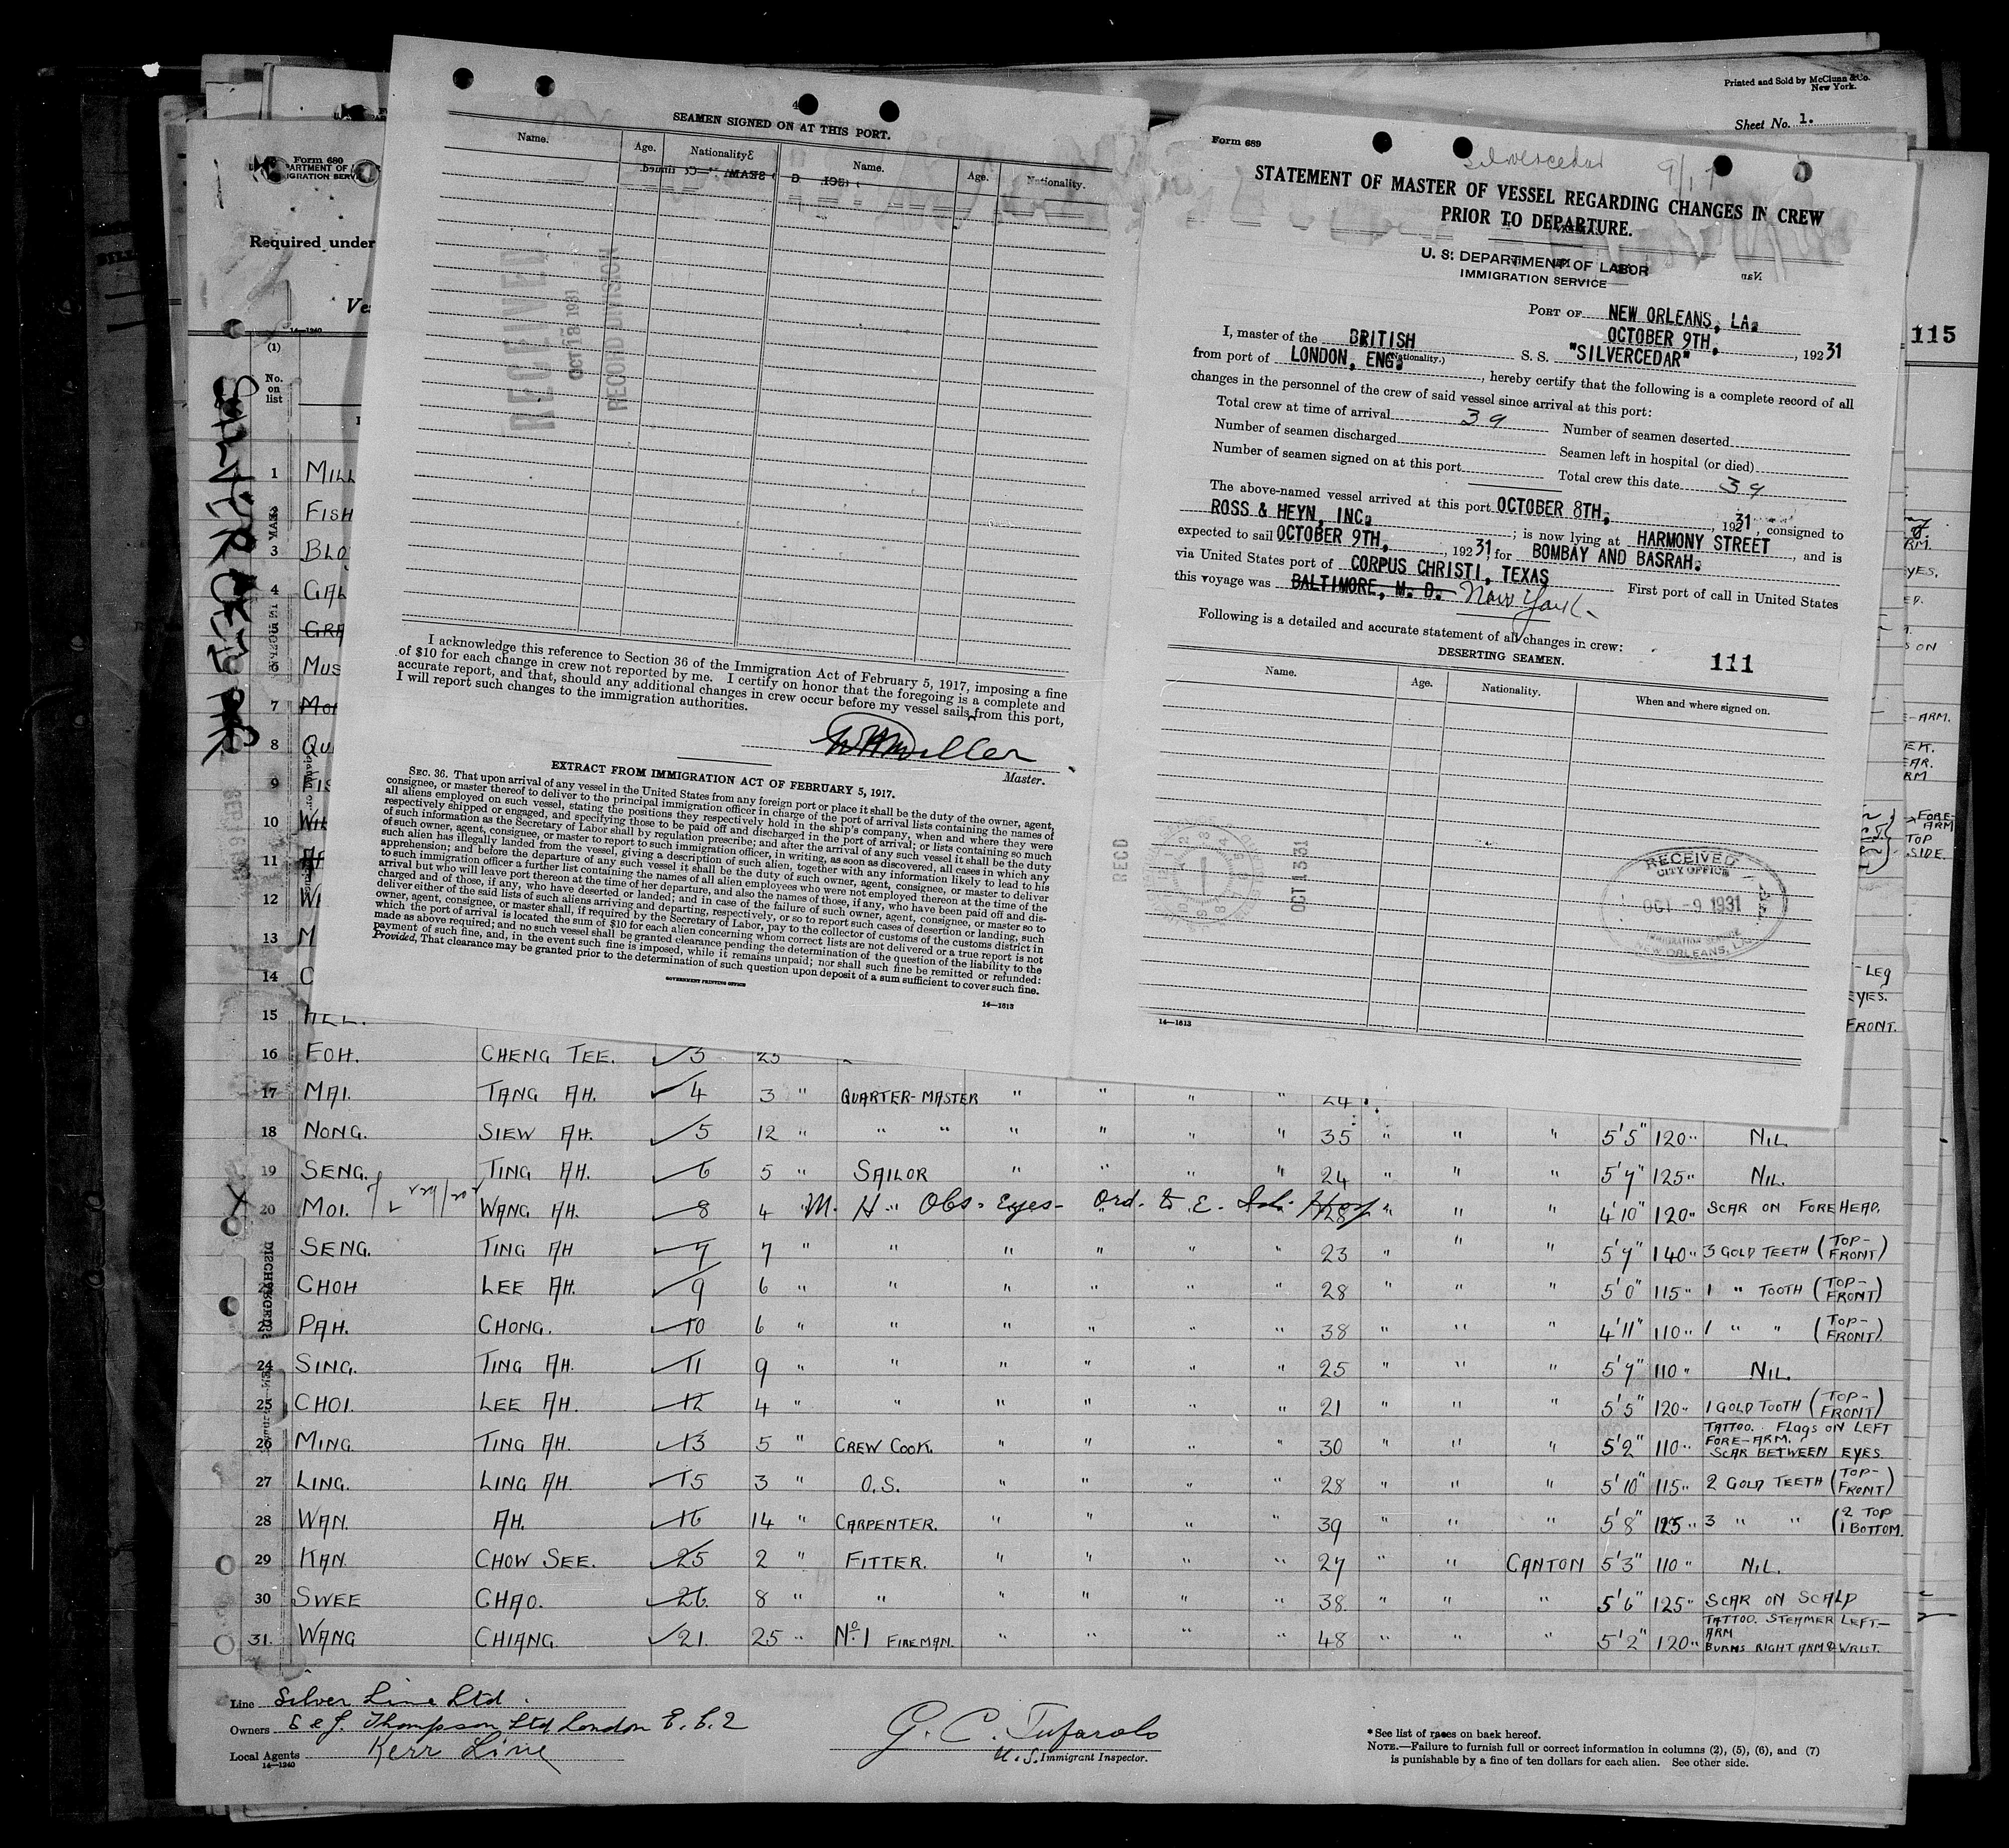 Printed and Sold by McClunn & Co.
New York.
Sheet No. 1.
115
Form 680
IGRATION SERV
Required under
14—1240
(1)
No.
on
list
SILVERCEDAR
1 MILL
FISH
3 BLO
4 GAL
5 GRA
MUS
7 MOR
8 QU
9 FIS
10 WIL
11
12 WI
13 M
14 C
15
4
SEAMEN SIGNED ON AT THIS PORT.
Name. Age. Nationality Name. Age. Nationality.
RECEIVED
OCT 13 1931
RECORD DIVISION
I acknowledge this reference to Section 36 of the Immigration Act of February 5, 1917, imposing a fine
of $10 for each change in crew not reported by me. I certify on honor that the foregoing is a complete and
accurate report, and that, should any additional changes in crew occur before my vessel sails from this port,
I will report such changes to the immigration authorities.
Master.
EXTRACT FROM IMMIGRATION ACT OF FEBRUARY 5, 1917.
SEC. 36. That upon arrival of any vessel in the United States from any foreign port or place it shall be the duty of the owner, agent,
consignee, or master thereof to deliver to the principal immigration officer in charge of the port of arrival lists containing the names of
all aliens employed on such vessel, stating the positions they respectively hold in the ship's company, when and where they were
respectively shipped or engaged, and specifying those to be paid off and discharged in the port of arrival; or lists containing so much
of such information as the Secretary of Labor shall by regulation prescribe; and after the arrival of any such vessel it shall be the duty
of such owner, agent, consignee, or master to report to such immigration officer, in writing, as soon as discovered, all cases in which any
such alien has illegally landed from the vessel, giving a description of such alien, together with any information likely to lead to his
apprehension; and before the departure of any such vessel it shall be the duty of such owner, agent, consignee, or master to deliver
to such immigration officer a further list containing the names of all alien employees who were not employed thereon at the time of the
arrival but who will leave port thereon at the time of her departure, and also the names of those, if any, who have been paid off and dis-
charged and of those, if any, who have deserted or landed; and in case of the failure of such owner, agent, consignee, or master so to
deliver either of the said lists of such aliens arriving and departing, respectively, or so to report such cases of desertion or landing, such
owner, agent, consignee, or master shall, if required by the Secretary of Labor, pay to the collector of customs of the customs district in
which the port of arrival is located the sum of $10 for each alien concerning whom correct lists are not delivered or a true report is not
made as above required; and no such vessel shall be granted clearance pending the determination of the question of the liability to the
payment of such fine, and, in the event such fine is imposed, while it remains unpaid; nor shall such fine be remitted or refunded:
Provided, That clearance may be granted prior to the determination of such question upon deposit of a sum sufficient to cover such fine.
GOVERNMENT PRINTING OFFICE
14—1613
Form 689
Silvercedar 9/17
STATEMENT OF MASTER OF VESSEL REGARDING CHANGES IN CREW
PRIOR TO DEPARTURE.
U. S. DEPARTMENT OF LABOR
IMMIGRATION SERVICE
PORT OF NEW ORLEANS, LA.
OCTOBER 9TH, , 192 31
I, master of the BRITISH S. S. "SILVERCEDAR"
(Nationality.)
from port of LONDON, ENG. , hereby certify that the following is a complete record of all
changes in the personnel of the crew of said vessel since arrival at this port:
Total crew at time of arrival 39 Number of seamen deserted
Number of seamen discharged Seamen left in hospital (or died)
Number of seamen signed on at this port Total crew this date 39
The above-named vessel arrived at this port OCTOBER 8TH, , 192 31 , consigned to
ROSS & HEYN, INC. ; is now lying at HARMONY STREET , and is
expected to sail OCTOBER 9TH, , 192 31 for BOMBAY AND BASRAH.
via United States port of CORPUS CHRISTI, TEXAS First port of call in United States
this voyage was BALTIMORE, M. D. New York
Following is a detailed and accurate statement of all changes in crew:
DESERTING SEAMEN. 111
Name. Age. Nationality. When and where signed on.
RECD
OCT 13 31
RECEIVED
CITY OFFICE
OCT -9 1931
IMMIGRATION SERVICE
NEW ORLEANS, LA.
14—1613
16 FOH. CHENG TEE. 3 25
17 MAI. TANG AH. 4 3 " QUARTER-MASTER " " " " 24
18 NONG. SIEW AH. 5 12 " " " " " " " 35 " " " 5'5" 120 " NIL.
19 SENG. TING AH. 6 5 " SAILOR " " " " 24 " " " 5'7" 125 " NIL.
20 MOI. WANG AH. 8 4 " M. H. Obs. Eyes - Ord. to E. Isl. Hosp 28 " " " 4'10" 120 " SCAR ON FOREHEAD.
SENG. TING AH 7 7 " " " " " " 23 " " " 5'7" 140 " 3 GOLD TEETH (TOP-FRONT)
CHOH LEE AH. 9 6 " " " " " " 28 " " " 5'0" 115 " 1 " TOOTH (TOP-FRONT)
PAH. CHONG. 10 6 " " " " " " 38 " " " 4'11" 110 " 1 " " (TOP-FRONT)
24 SING. TING AH. 11 9 " " " " " " 25 " " " 5'7" 110 " NIL.
25 CHOI. LEE AH. 12 4 " " " " " " 21 " " " 5'5" 120 " 1 GOLD TOOTH (TOP-FRONT)
26 MING. TING AH. 13 5 " CREW COOK. " " " " 30 " " " 5'2" 110 " TATTOO. FLAGS ON LEFT FORE-ARM. SCAR BETWEEN EYES.
27 LING. LING AH. 15 3 " O.S. " " " " 28 " " " 5'10" 115 " 2 GOLD TEETH (TOP-FRONT)
28 WAN. AH. 16 14 " CARPENTER. " " " " 39 " " " 5'8" 125 " 3 " " (2 TOP 1 BOTTOM.
29 KAN. CHOW SEE. 25 2 " FITTER. " " " " 27 " " CANTON 5'3" 110 " NIL.
30 SWEE CHAO. 26. 8 " " " " " " 38. " " " 5'6" 125 " SCAR ON SCALP
31. WANG CHIANG. 21. 25 " No. 1 FIREMAN. " " " " 48 " " " 5'2" 120 " TATTOO. STEAMER LEFT-ARM BURNS RIGHT ARM & WRIST.
Line Silver Line Ltd.
Owners S & J. Thompson Ltd London E. C. 2
Local Agents Kerr Line
14—1240
G. C. Tufarolo
U. S. Immigrant Inspector.
* See list of races on back hereof.
NOTE.—Failure to furnish full or correct information in columns (2), (5), (6), and (7)
is punishable by a fine of ten dollars for each alien. See other side.